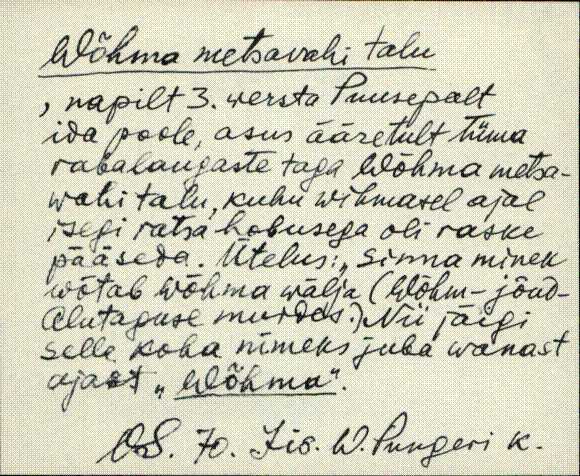 Wõhma metsavahi talu
, napilt 3. wersta Puusepalt
ida poole, asus ääretult tüma
rabalaugaste taga Wõhma metsa-
wahi talu, kuhu wihmasel ajal
isegi ratsa hobusega oli raske
pääseda. Ütelus: „Sinna minek
wõtab wõhma wälja (Wõhm - jõud -
Alutaguse murdes.) Nii jäigi
selle koha nimeks juba wanast
ajast „Wõhma".
O.S. 70. Jis. W. Pungeri k.